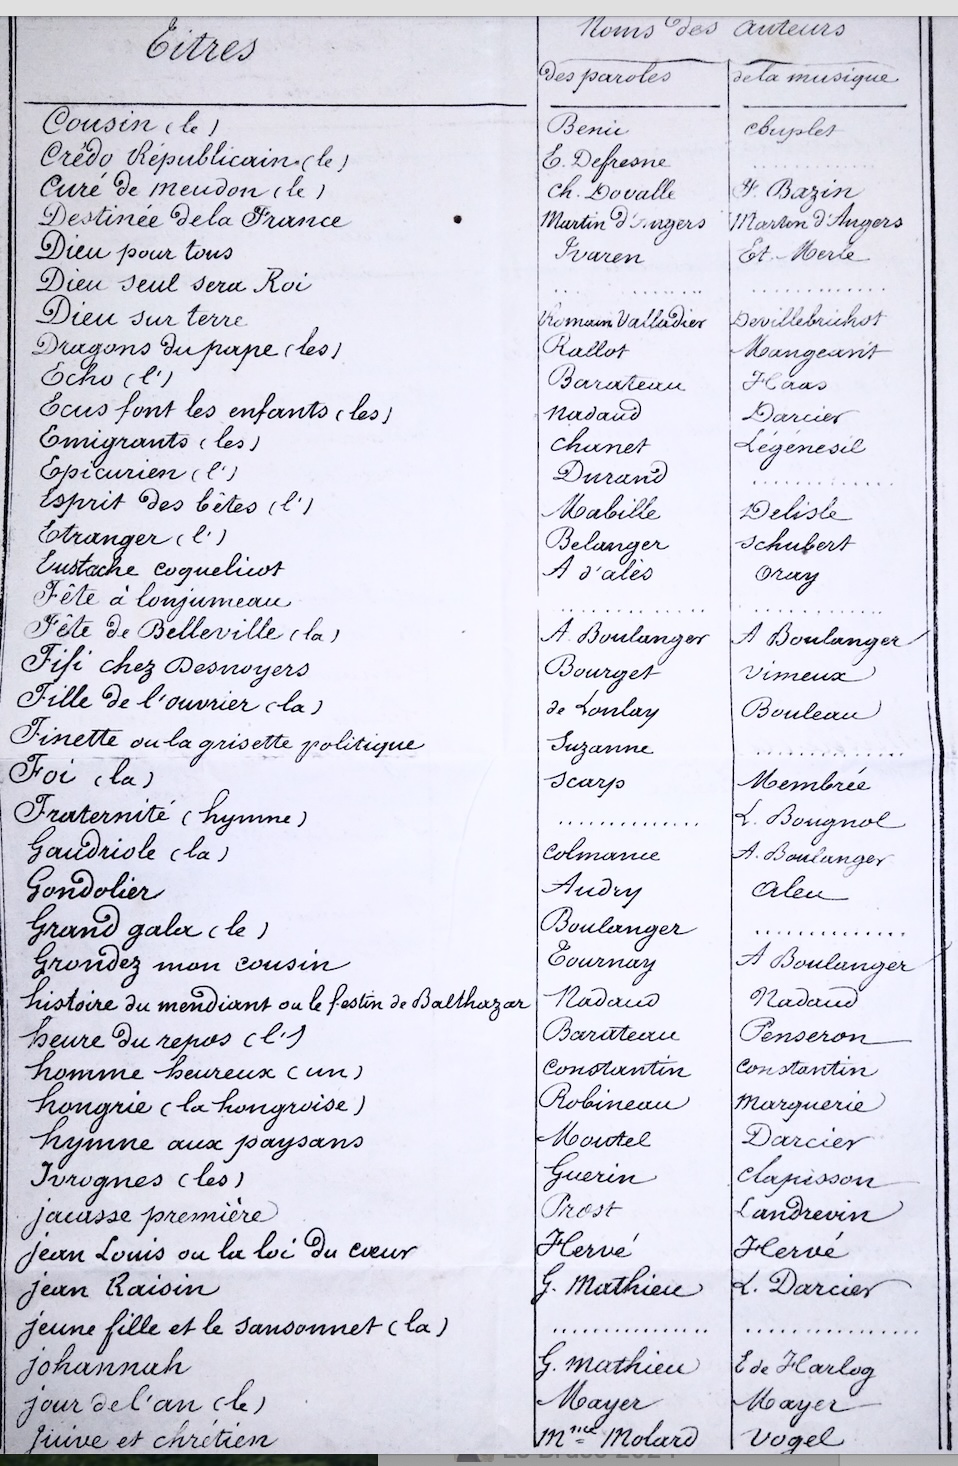 Titres Noms des auteurs
des paroles de la musique
Cousin (le) Couplet
Crédo Républicain (le) E. Defresne ............
Curé de meudon (le) Ch. Dovalle F. Bazin
Destinée de la France Martin d'Angers Martin d'Angers
Dieu pour tous Ivaren Et. Merle
Dieu seul sera Roi ............ ............
Dieu sur terre Romain Valladier Devillebichot
Dragons du pape (les) Rallot Mangeant
Echo (l') Barateau Haas
Ecus font les enfants (les) Nadaud Darcier
Emigrants (les) Chanet Légenesil
Epicurien (l') Durand ............
Esprit des bêtes (l') Mabille Delisle
Etranger (l') Belanger Schubert
Eustache coquelicot A d'alès Oray
Fête à lonjumeau ............ ............
Fête de Belleville (la) A. Boulanger A Boulanger
Fifi chez Desnoyers Bourget Vimeux
Fille de l'ouvrier (la) de Lonlay Bouleau
Finette ou la grisette politique Suzanne ............
Foi (la) Scarp Membrée
Fraternité (hymne) ............ L. Bougnol
Gaudriole (la) Colmance A. Boulanger
Gondolier Audry Aleu
Grand gala (le) Boulanger ............
Grondez mon cousin Tournay A Boulanger
histoire du mendiant ou le festin de Balthazar Nadaud Nadaud
heure du repos (l') Barateau Penseron
homme heureux (un) Constantin Constantin
hongrie (la hongroise) Robineau Marguerie
hymne aux paysans Moutel Darcier
Ivrognes (les) Guerin Clapisson
jacasse première Prost Landrevin
jean Louis ou la loi du cœur Hervé Hervé
jean Raisin G. Mathieu L. Darcier
jeune fille et le sansonnet (la) ............ ............
johannah G. Mathieu E de Hartog
jour de l'an (le) Mayer Mayer
juive et chrétien Molard Vogel